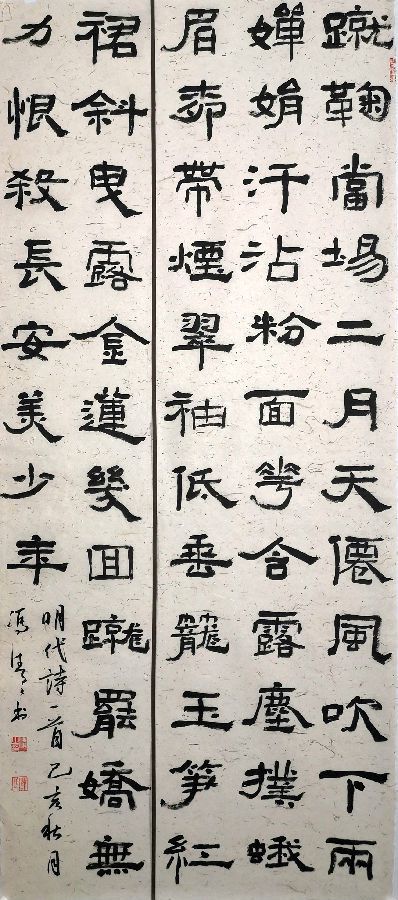 蹴鞠當場二月天僊風吹下兩
嬋娟汗沾粉面花含露塵撲蛾
眉柳帶煙翠袖低垂籠玉笋紅
裙斜曳露金蓮幾回蹴罷嬌無
力恨殺長安美少年
明代詩一首己亥秋月
馮